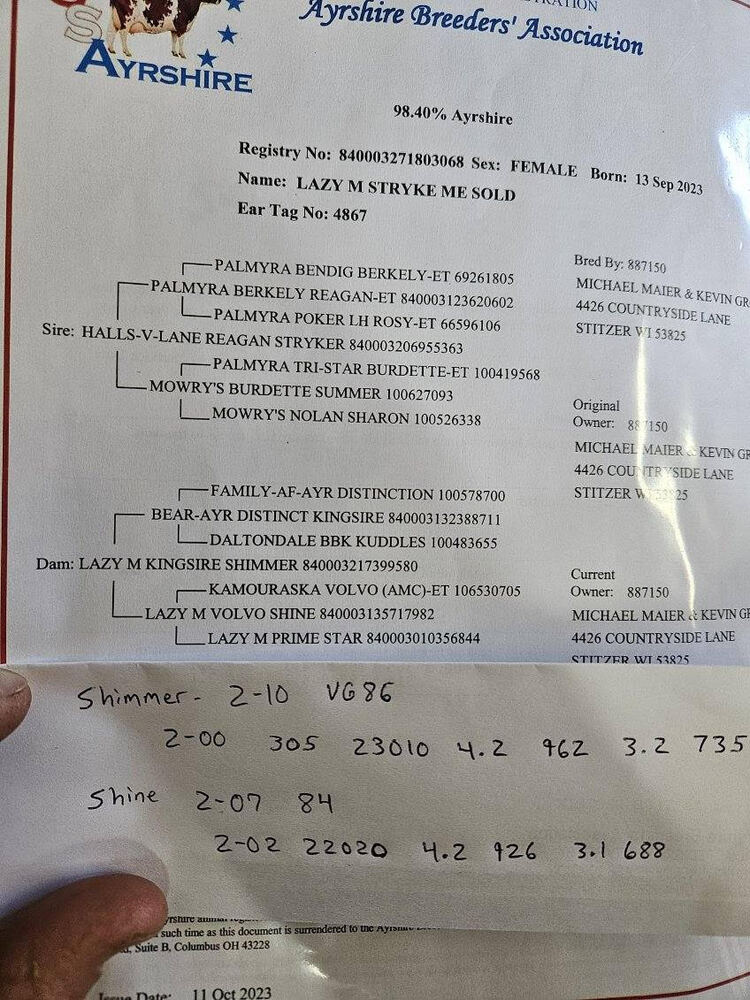 Ayrshire Breeders' Association
AYRSHIRE
98.40% Ayrshire
Registry No: 840003271803068 Sex: FEMALE Born: 13 Sep 2023
Name: LAZY M STRYKE ME SOLD
Ear Tag No: 4867
PALMYRA BENDIG BERKELY-ET 69261805
PALMYRA BERKELY REAGAN-ET 840003123620602
PALMYRA POKER LH ROSY-ET 66596106
Sire: HALLS-V-LANE REAGAN STRYKER 840003206955363
PALMYRA TRI-STAR BURDETTE-ET 100419568
MOWRY'S BURDETTE SUMMER 100627093
MOWRY'S NOLAN SHARON 100526338
Bred By: 887150
MICHAEL MAIER & KEVIN GR
4426 COUNTRYSIDE LANE
STITZER WI 53825
Original
Owner: 887150
MICHAEL MAIER & KEVIN GR
4426 COUNTRYSIDE LANE
STITZER WI 53825
FAMILY-AF-AYR DISTINCTION 100578700
BEAR-AYR DISTINCT KINGSIRE 840003132388711
DALTONDALE BBK KUDDLES 100483655
Dam: LAZY M KINGSIRE SHIMMER 840003217399580
KAMOURASKA VOLVO (AMC)-ET 106530705
LAZY M VOLVO SHINE 840003135717982
LAZY M PRIME STAR 840003010356844
Current
Owner: 887150
MICHAEL MAIER & KEVIN GR
4426 COUNTRYSIDE LANE
STITZER WI 53825
Shimmer - 2-10 VG86
2-00 305 23010 4.2 962 3.2 735
Shine 2-07 84
2-02 22020 4.2 926 3.1 688
such time as this document is surrendered to the Ayrshire
Suite B, Columbus OH 43228
Issue Date: 11 Oct 2023